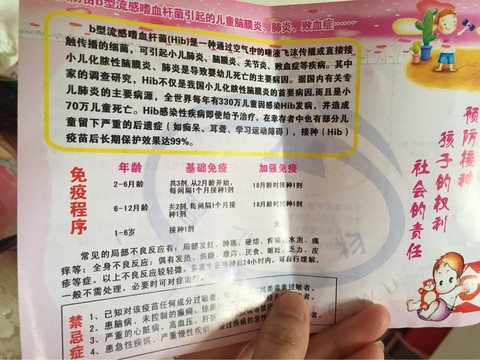 b型流感嗜血杆菌引起的儿童脑膜炎、肺炎、败血症……
b型流感嗜血杆菌(Hib)是一种通过空气中的唾液飞沫传播或直接接
触传播的细菌，可引起小儿肺炎、脑膜炎、关节炎、败血症等疾病。其中
小儿化脓性脑膜炎、肺炎是导致婴幼儿死亡的主要病因。据国内有关专
家的调查研究，Hib不仅是我国小儿化脓性脑膜炎的首要病因,而且是小
儿肺炎的主要病源，全世界每年有330万儿童因感染Hib发病，并造成
70万儿童死亡。Hib感染性疾病即使给予治疗，在幸存者中也有部分儿
童留下严重的后遗症（如痴呆、耳聋、学习运动障碍），接种（Hib）
疫苗后长期保护效果达99%。
免疫程序
年龄 基础免疫 加强免疫
2-6月龄 共3剂,从2月龄开始,每间隔1个月接种1剂 18月龄时接种1剂
6-12月龄 共2剂,每间隔1个月接种1剂 18月龄时接种1剂
1-6岁 接种1剂 无
常见的局部不良反应有：局部发红、肿胀、硬结、疼痛、水泡、瘙
痒等；全身不良反应：偶有发热、嗜睡、腹泻、厌食、呕吐、乏力、皮
疹等症。以上不良反应较轻微，多发生在接种后24小时内，可自行缓解，
一般不需处理，必要时可对症治疗。
禁忌症
1、已知对该疫苗任何成分过敏者，
2、患脑病、未控制的癫痫、惊厥
3、严重的心脏病、高血压、肝肾
4、患急性疾病、严重慢性疾病
预防接种
孩子的权利
社会的责任